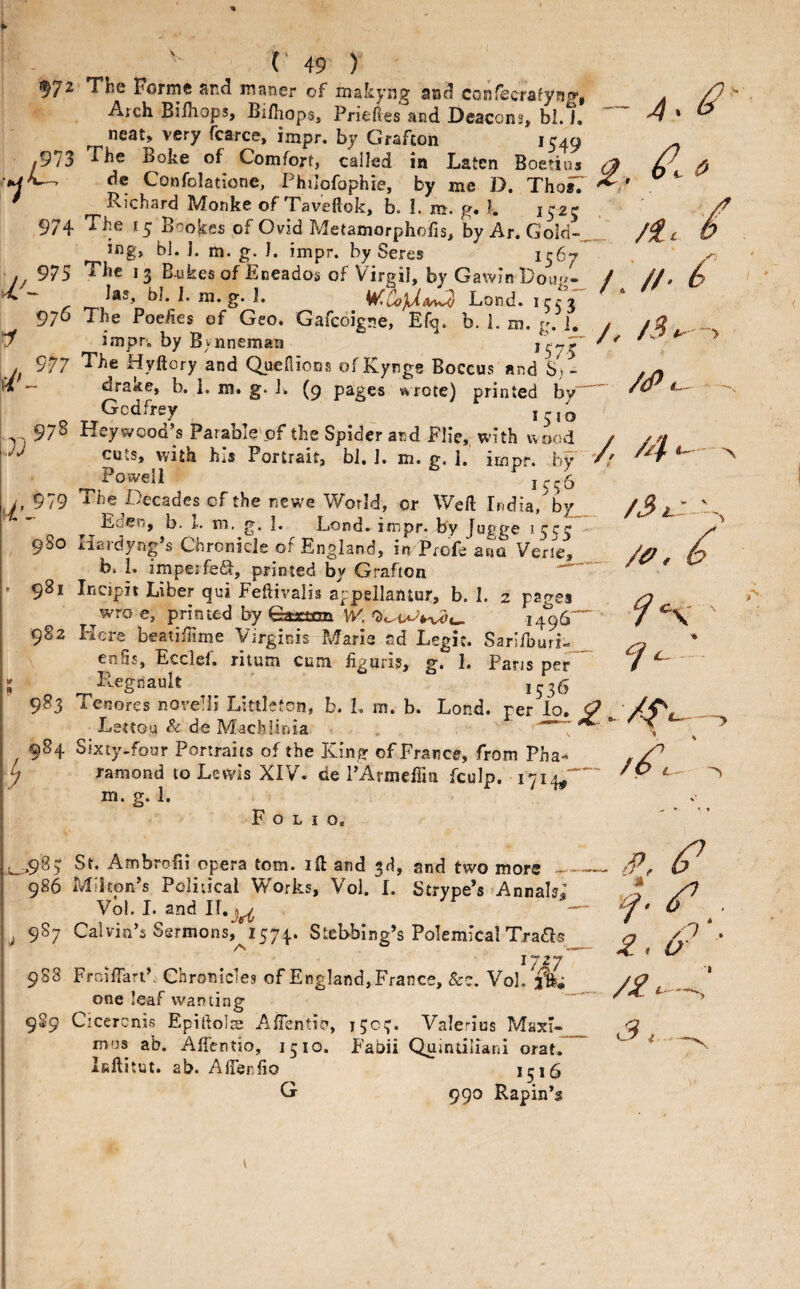 ( 49 )
972 The Forme and maner of makyng and consecratyng,
Arch Bishops, Bishops, Priestes and Deacons, bl. l. 4. 6
neat, very scarce, impr. by Grafton 1549
973 The Boke of Comfort, called in Laten Boetius 2. 6. 6
de Consolatione, Philosophie, by me D. Thos.
Richard Monke of Tavestok, b. l. m. g. l. 1525
974 The 15 Bookes of Ovid Metamorphosis, by Ar. Gold- 12. 6
ing, bl. l. m. g. l. impr. by Seres 1567
975 The 13 Bukes of Eneados of Virgil, by Gawin Doug- 1. 11. 6
las, bl. l. m. g. l. W. Copland Lond. 1553
976 The Poesies of Geo. Gascoigne, Esq. b. l. m. g. l. 1. 13.
impr. by Bynneman 1575
977 The Hystory and Questions of Kynge Boccus and Sy-
drake, b. l. m. g. l. (9 pages wrote) printed by 10.
Godfrey 1510
978 Heywood's Parable of the Spider and Flie, with wood
cuts, with his Portrait, bl. l. m. g. l. impr. by 1. 14.
Powell 1556
979 The Decades of the newe World, or West India, by 13.
Eden, b. l. m. g. l. Lond. impr. by Jugge 1555
980 Hardyng's Chronicle of England, in Prose and Verse, 10. 6
b. l. imperfect, printed by Grafton
981 Incipit Liber qui Festivalis appellantur, b. l. 2 pages
wro e, printed by Caxton W. 1496 9
982 Hore beatissime Virginis Marie ad Legit. Sarisburi-
ensis, Ecclef. ritum cum figuris, g. l. Paris per 9
Regnault 1536
983 Tenores novelli Littleton, b. l. m. b. Lond. per Io. 2. 15.
Lettou & de Machlinia
984 Sixty-four Portraits of the King of France, from Pha-
ramond to Lewis XIV. de l'Armessin sculp. 1714,
m. g. l.
FOLIO.
985 St. Ambrosii opera tom. 1st and 3d, and two more 8. 6
986 Milton's Political Works, Vol. I. Strype's Annals,
Vol. I. and II. 9. 6
987 Calvin's Sermons, 1574. Stebbing's Polemical Tracts 2. 6
1727
988 Froissart' Chronicles of England, France, &c. Vol. 12.
one leaf wanting
989 Ciceronis Epistolæ Assentio, 1505. Valerius Maxi- 3.
mus ab. Assentio, 1510. Fabii Quintiliani orat.
Institut. ab. Assensio 1516
G 990 Rapin's